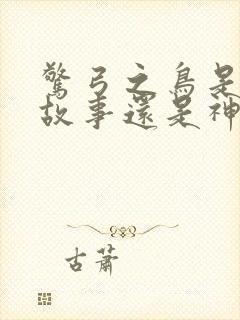 驚弓之鳥是
故事還是神
古蕭